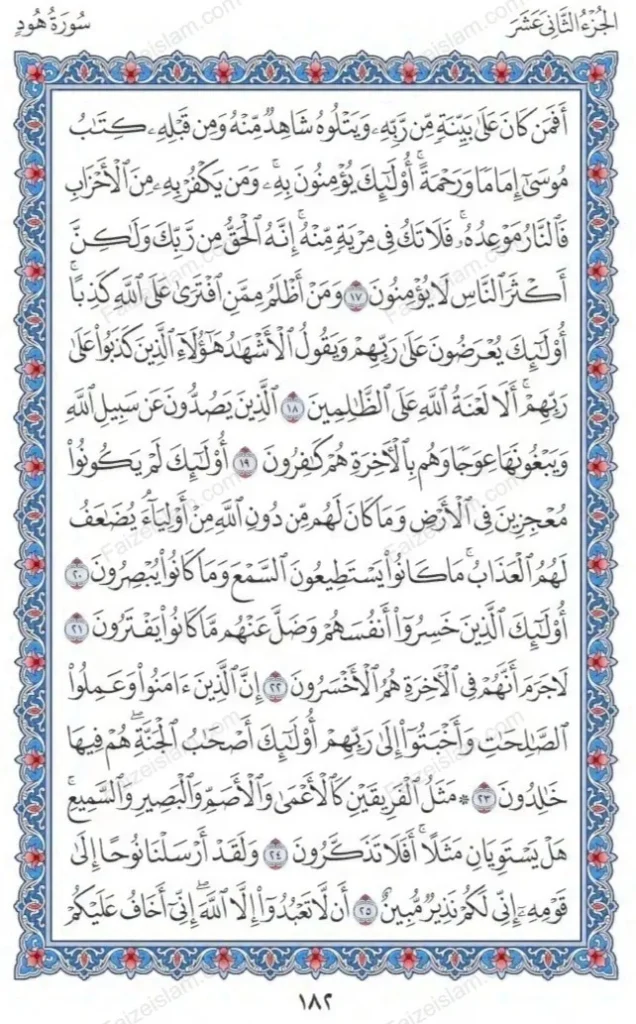 الجزء الثاني عشر
سورة هود
أَفَمَن كَانَ عَلَىٰ بَيِّنَةٍ مِّن رَّبِّهِۦ وَيَتْلُوهُ شَاهِدٌ مِّنْهُ وَمِن قَبْلِهِۦ كِتَٰبُ
مُوسَىٰٓ إِمَامًا وَرَحْمَةً ۚ أُو۟لَٰٓئِكَ يُؤْمِنُونَ بِهِۦ ۚ وَمَن يَكْفُرْ بِهِۦ مِنَ ٱلْأَحْزَابِ
فَٱلنَّارُ مَوْعِدُهُۥ ۚ فَلَا تَكُ فِى مِرْيَةٍ مِّنْهُ ۚ إِنَّهُ ٱلْحَقُّ مِن رَّبِّكَ وَلَٰكِنَّ
أَكْثَرَ ٱلنَّاسِ لَا يُؤْمِنُونَ ١٧ وَمَنْ أَظْلَمُ مِمَّنِ ٱفْتَرَىٰ عَلَى ٱللَّهِ كَذِبًا ۚ
أُو۟لَٰٓئِكَ يُعْرَضُونَ عَلَىٰ رَبِّهِمْ وَيَقُولُ ٱلْأَشْهَٰدُ هَٰٓؤُلَآءِ ٱلَّذِينَ كَذَبُوا۟ عَلَىٰ
رَبِّهِمْ ۚ أَلَا لَعْنَةُ ٱللَّهِ عَلَى ٱلظَّٰلِمِينَ ١٨ ٱلَّذِينَ يَصُدُّونَ عَن سَبِيلِ ٱللَّهِ
وَيَبْغُونَهَا عِوَجًا وَهُم بِٱلْأَخِرَةِ هُمْ كَٰفِرُونَ ١٩ أُو۟لَٰٓئِكَ لَمْ يَكُونُوا۟
مُعْجِزِينَ فِى ٱلْأَرْضِ وَمَا كَانَ لَهُم مِّن دُونِ ٱللَّهِ مِنْ أَوْلِيَآءَ ۘ يُضَٰعَفُ
لَهُمُ ٱلْعَذَابُ ۚ مَا كَانُوا۟ يَسْتَطِيعُونَ ٱلسَّمْعَ وَمَا كَانُوا۟ يُبْصِرُونَ ٢٠
أُو۟لَٰٓئِكَ ٱلَّذِينَ خَسِرُوٓا۟ أَنفُسَهُمْ وَضَلَّ عَنْهُم مَّا كَانُوا۟ يَفْتَرُونَ ٢١
لَا جَرَمَ أَنَّهُمْ فِى ٱلْأَخِرَةِ هُمُ ٱلْأَخْسَرُونَ ٢٢ إِنَّ ٱلَّذِينَ ءَامَنُوا۟ وَعَمِلُوا۟
ٱلصَّٰلِحَٰتِ وَأَخْبَتُوٓا۟ إِلَىٰ رَبِّهِمْ أُو۟لَٰٓئِكَ أَصْحَٰبُ ٱلْجَنَّةِ ۖ هُمْ فِيهَا
خَٰلِدُونَ ٢٣ ۞ مَثَلُ ٱلْفَرِيقَيْنِ كَٱلْأَعْمَىٰ وَٱلْأَصَمِّ وَٱلْبَصِيرِ وَٱلسَّمِيعِ ۚ
هَلْ يَسْتَوِيَانِ مَثَلًا ۚ أَفَلَا تَذَكَّرُونَ ٢٤ وَلَقَدْ أَرْسَلْنَا نُوحًا إِلَىٰ
قَوْمِهِۦٓ إِنِّى لَكُمْ نَذِيرٌ مُّبِينٌ ٢٥ أَن لَّا تَعْبُدُوٓا۟ إِلَّا ٱللَّهَ ۖ إِنِّىٓ أَخَافُ عَلَيْكُمْ
١٨٢
Faizeislam.com